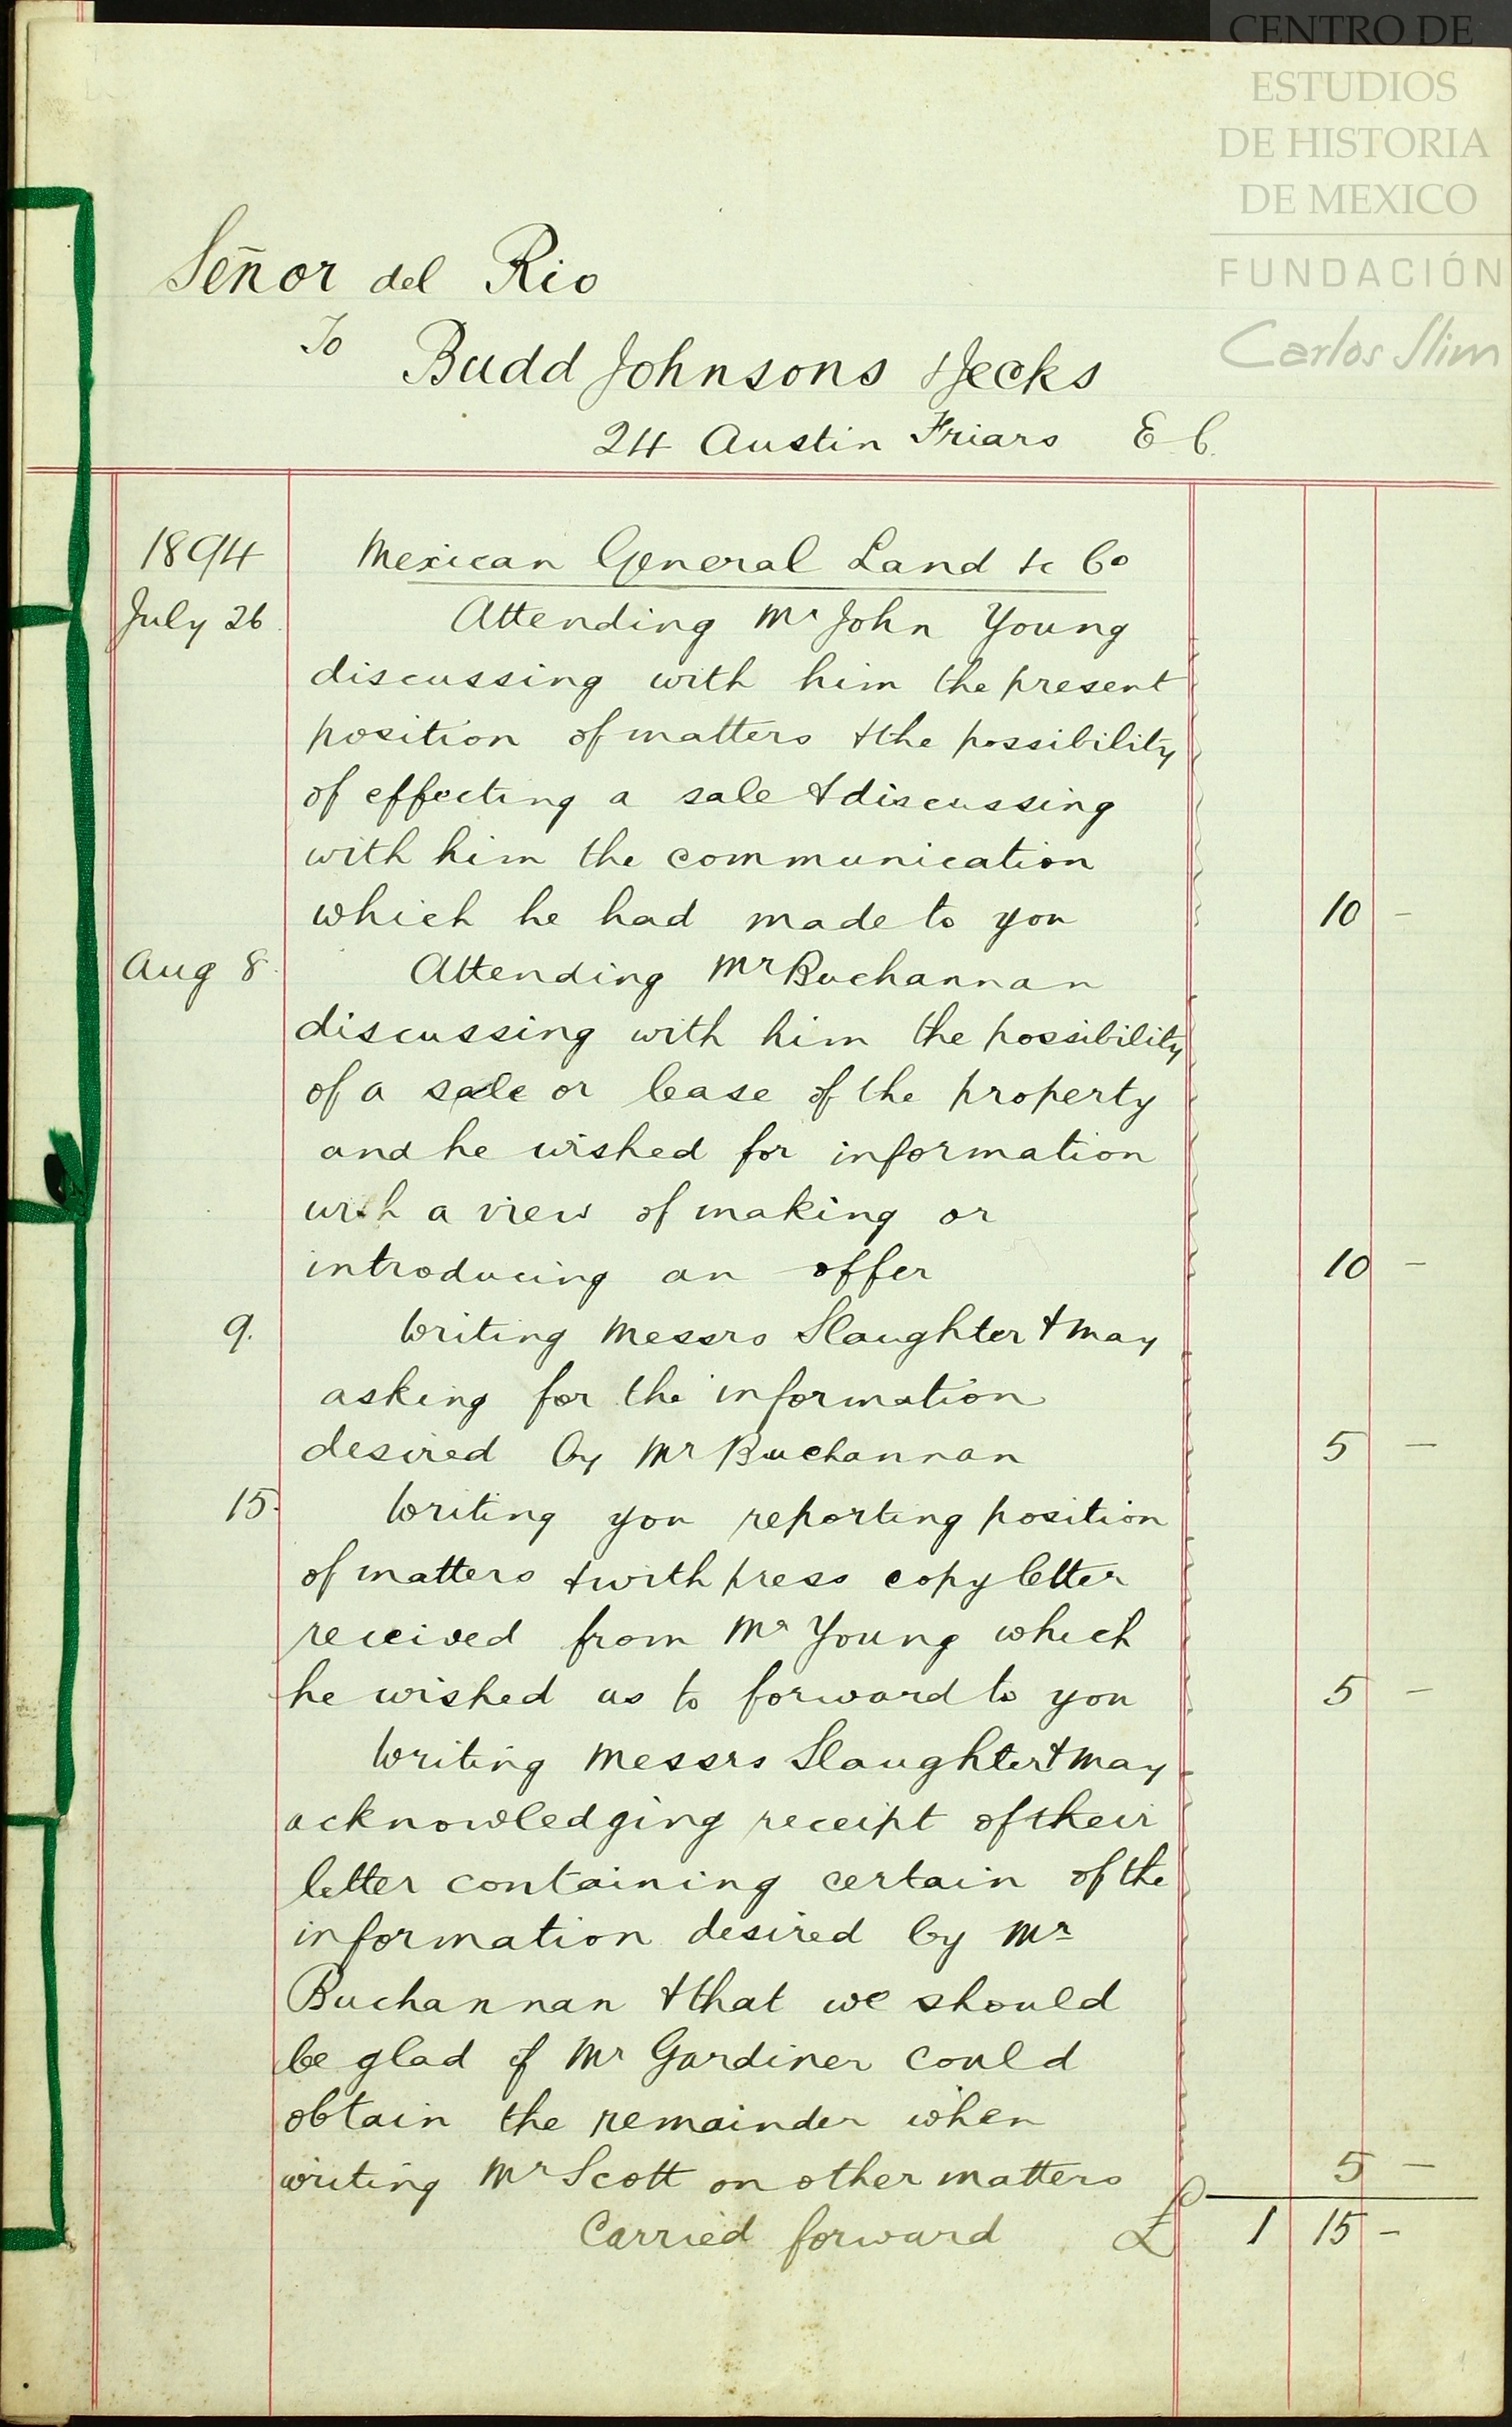 CENTRO DE
ESTUDIOS
DE HISTORIA
DE MEXICO
FUNDACIÓN
Carlos Slim
Señor del Rio
To
Budd Johnsons & Jecks
24 Austin Friars E.C.
1894 Mexican General Land &c Co
July 26. Attending Mr John Young
discussing with him the present
position of matters & the possibility
of effecting a sale & discussing
with him the communication
which he had made to you 10 -
Aug 8. Attending Mr Buchannan
discussing with him the possibility
of a sale or lease of the property
and he wished for information
with a view of making or
introducing an offer 10 -
9. Writing Messrs Slaughter & May
asking for the information
desired by Mr Buchannan 5 -
15. Writing you reporting position
of matters & with press copy letter
received from Mr Young which
he wished us to forward to you 5 -
Writing Messrs Slaughter & May
acknowledging receipt of their
letter containing certain of the
information desired by Mr
Buchannan & that we should
be glad if Mr Gardiner could
obtain the remainder when
writing Mr Scott on other matters 5 -
Carried forward £ 1 15 -